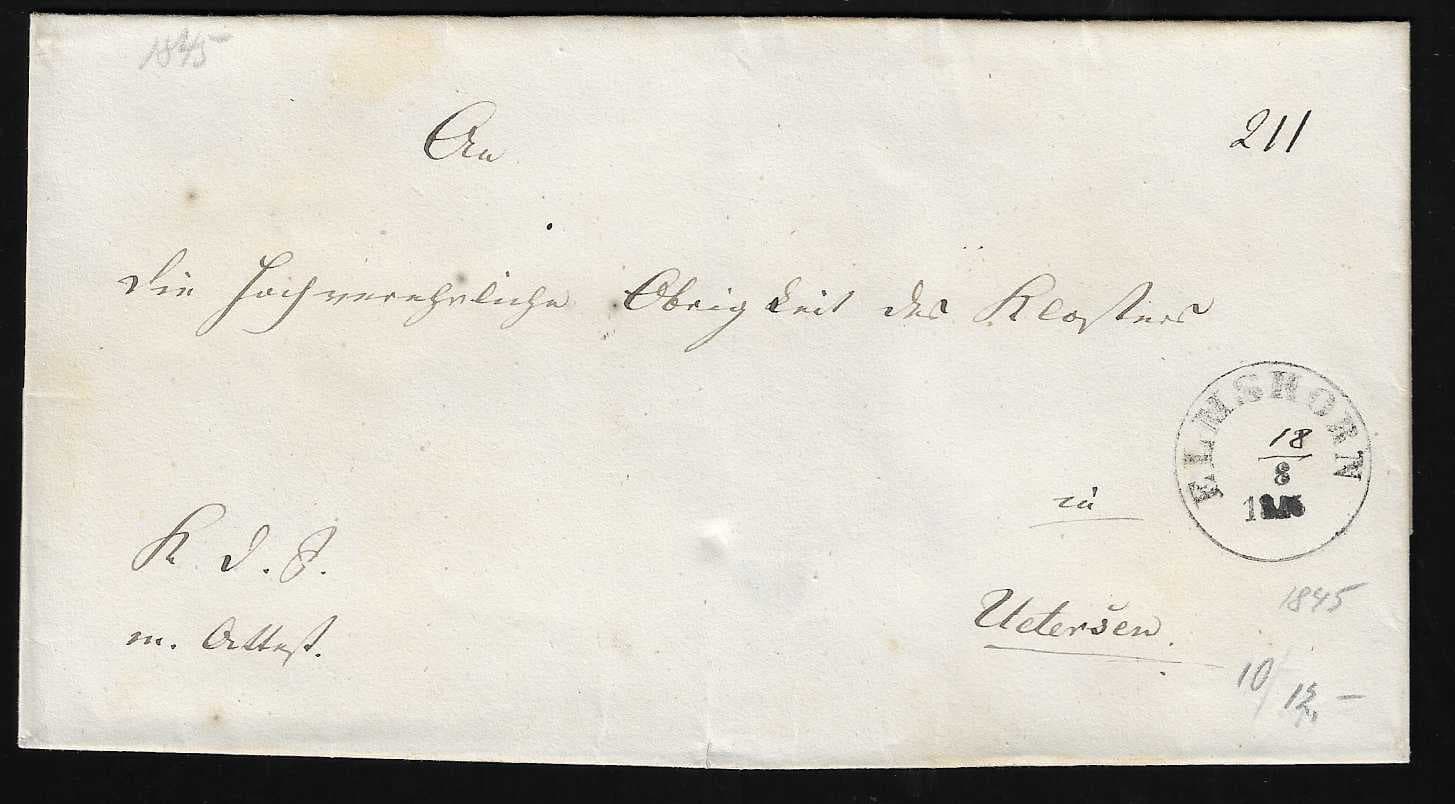 1845
An
211
die Hochverehrliche Obrigkeit des Klosters
ELMSHORN
18
8
zu
K. d. S.
m. Attest.
Uetersen.
1845
10/12,-